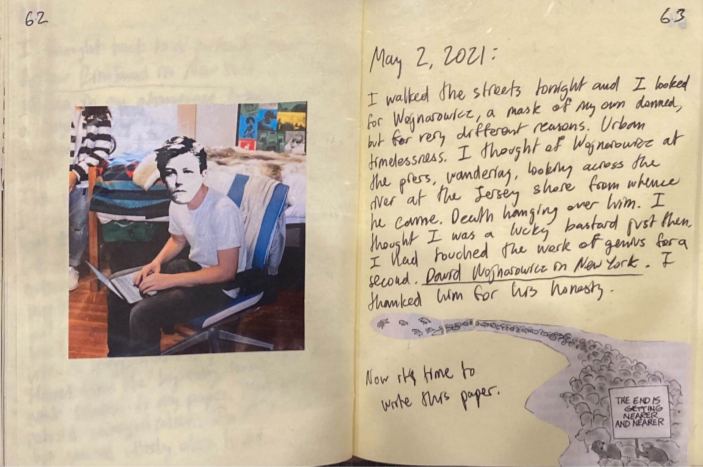 62
63
May 2, 2021:
I walked the streets tonight and I looked
for Wojnarowicz, a mask of my own donned,
but for very different reasons. Urban
timelessness. I thought of Wojnarowicz at
the piers, wandering, looking across the
river at the Jersey shore from whence
he came. Death hanging over him. I
thought I was a lucky bastard just then.
I had touched the work of genius for a
second. David Wojnarowicz in New York. I
thanked him for his honesty.
Now it's time to
write this paper.
THE END IS
GETTING
NEARER
AND NEARER